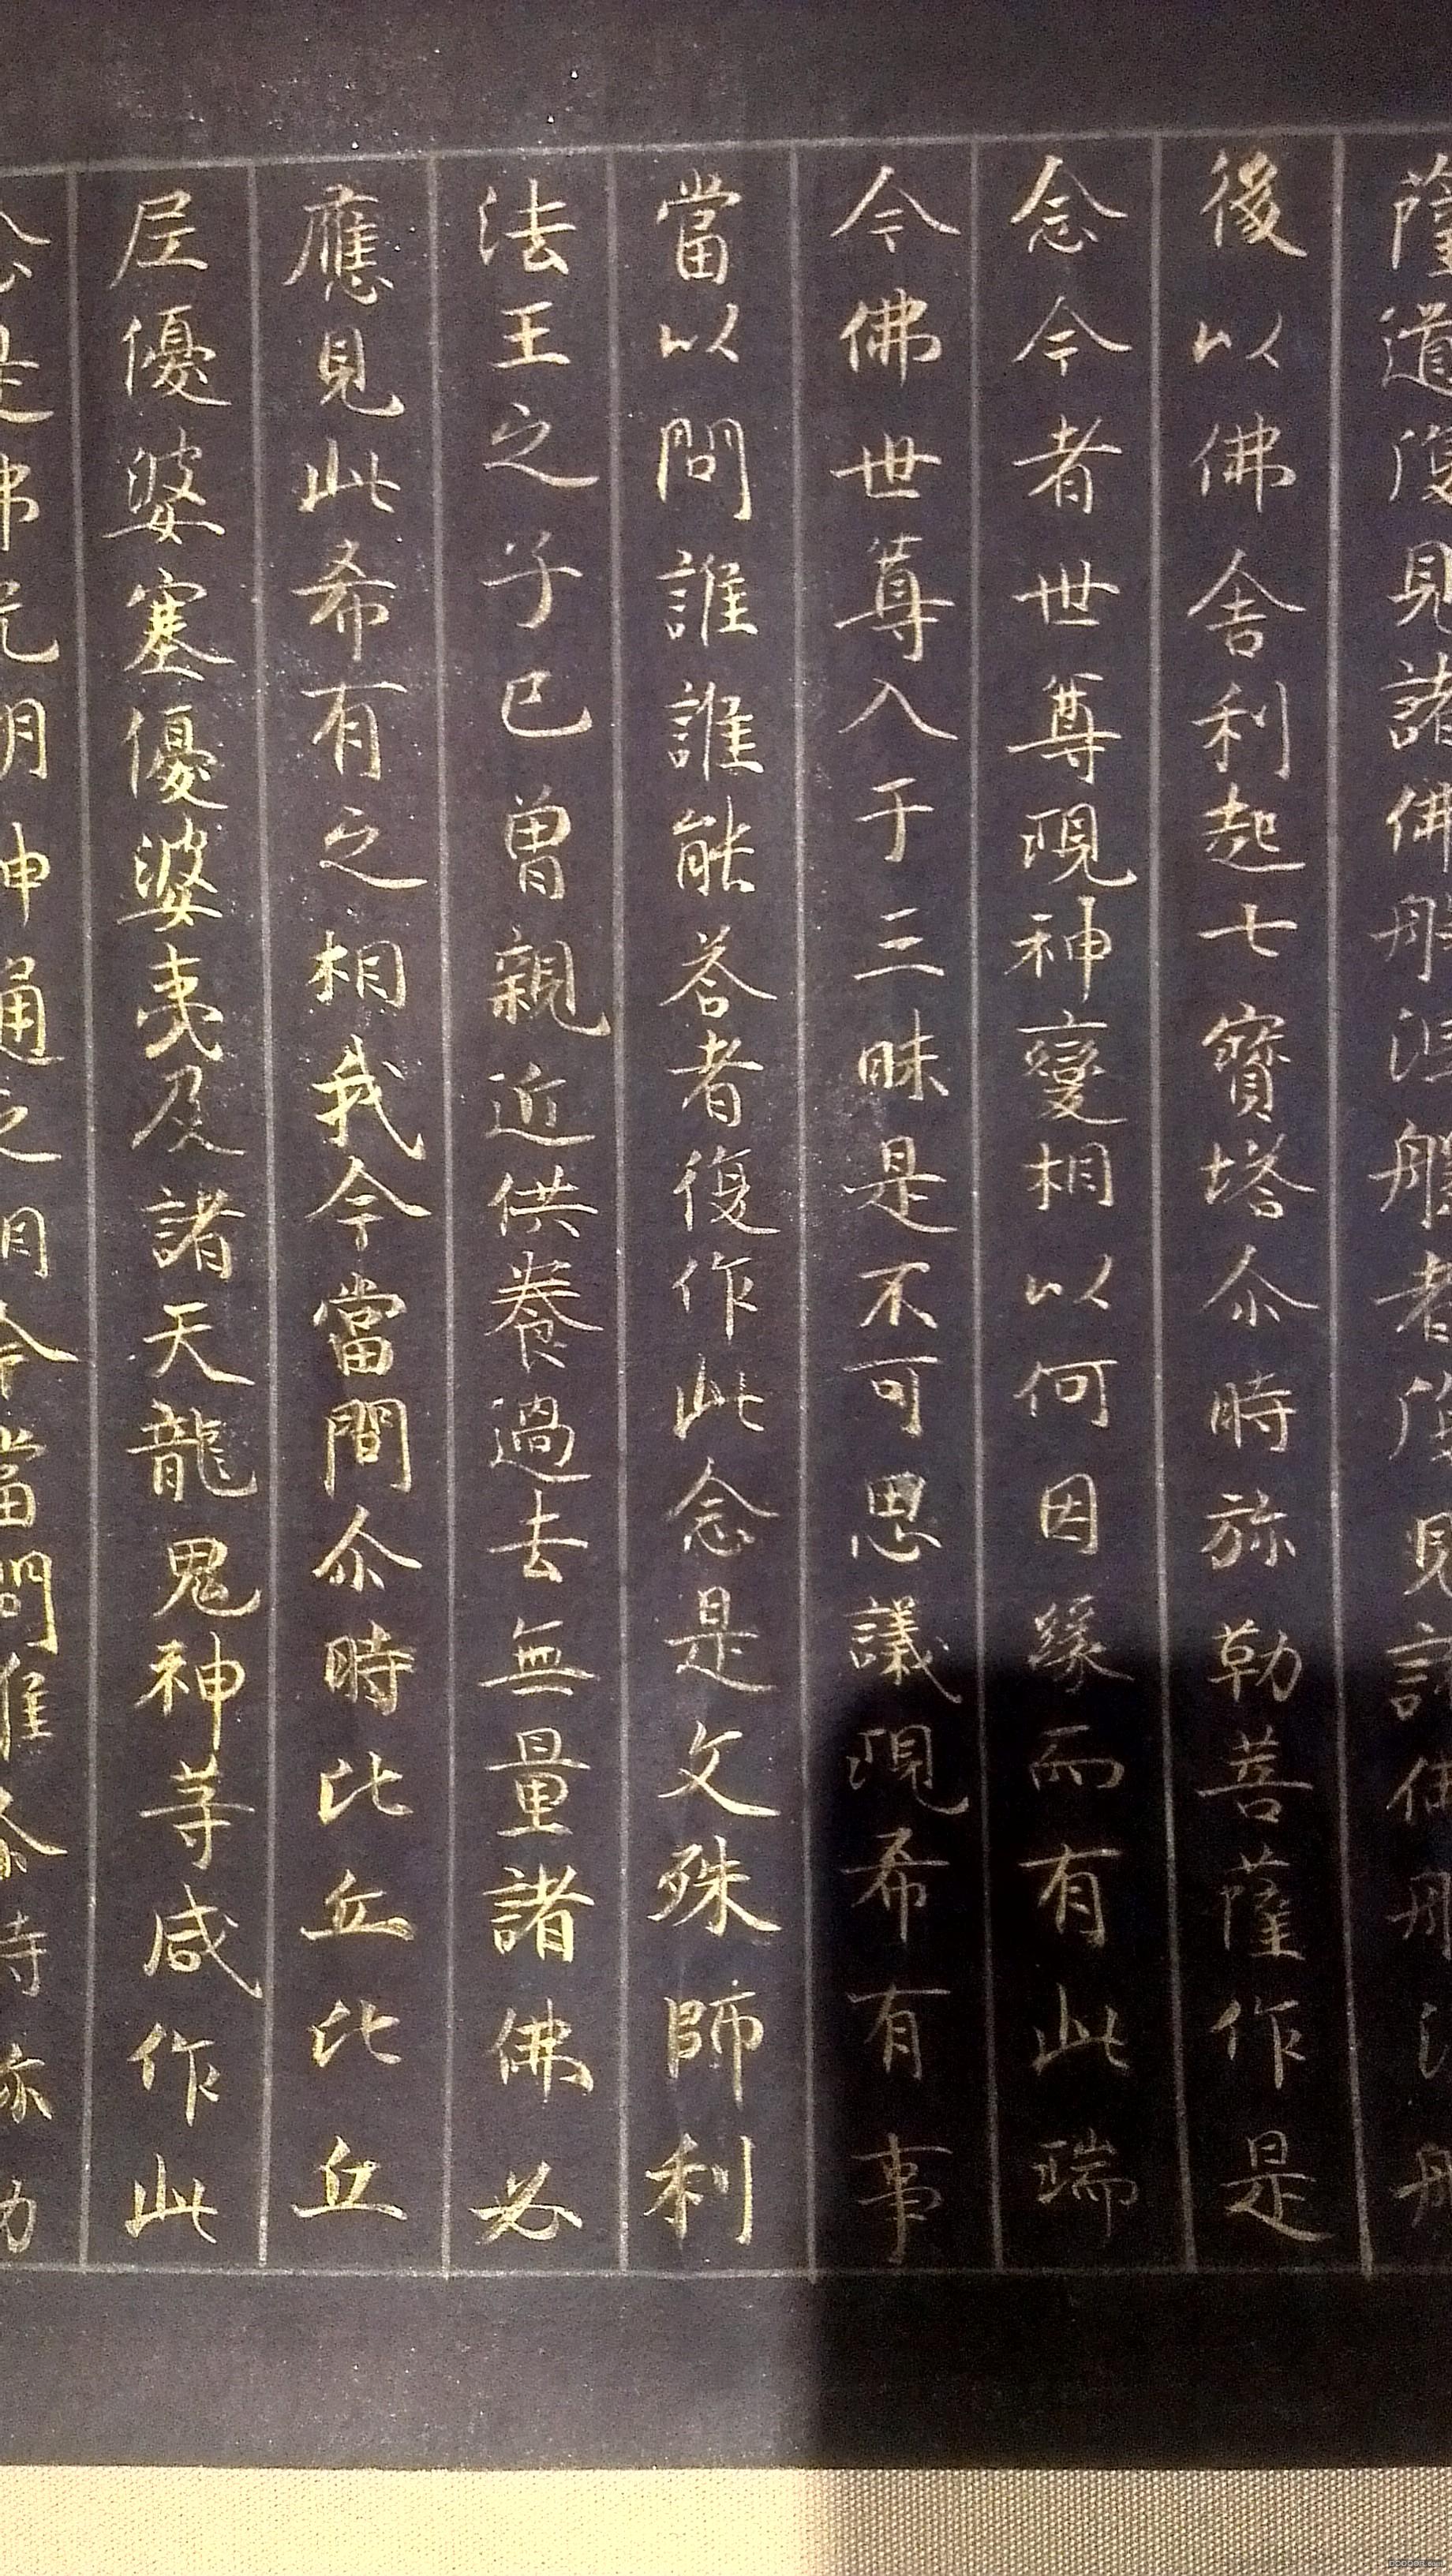 薩道復見諸佛般涅槃者復見諸佛般
後以佛舍利起七寶塔尒時弥勒菩薩作是
念今者世尊現神變相以何因緣而有此瑞
今佛世尊入于三昧是不可思議現希有事
當以問誰誰能荅者復作此念是文殊師利
法王之子已曾親近供養過去無量諸佛必
應見此希有之相我今當間尒時比丘比丘
尼優婆塞優婆夷及諸天龍鬼神等咸作此
念是佛光明神通之相今當問誰尒時弥勒